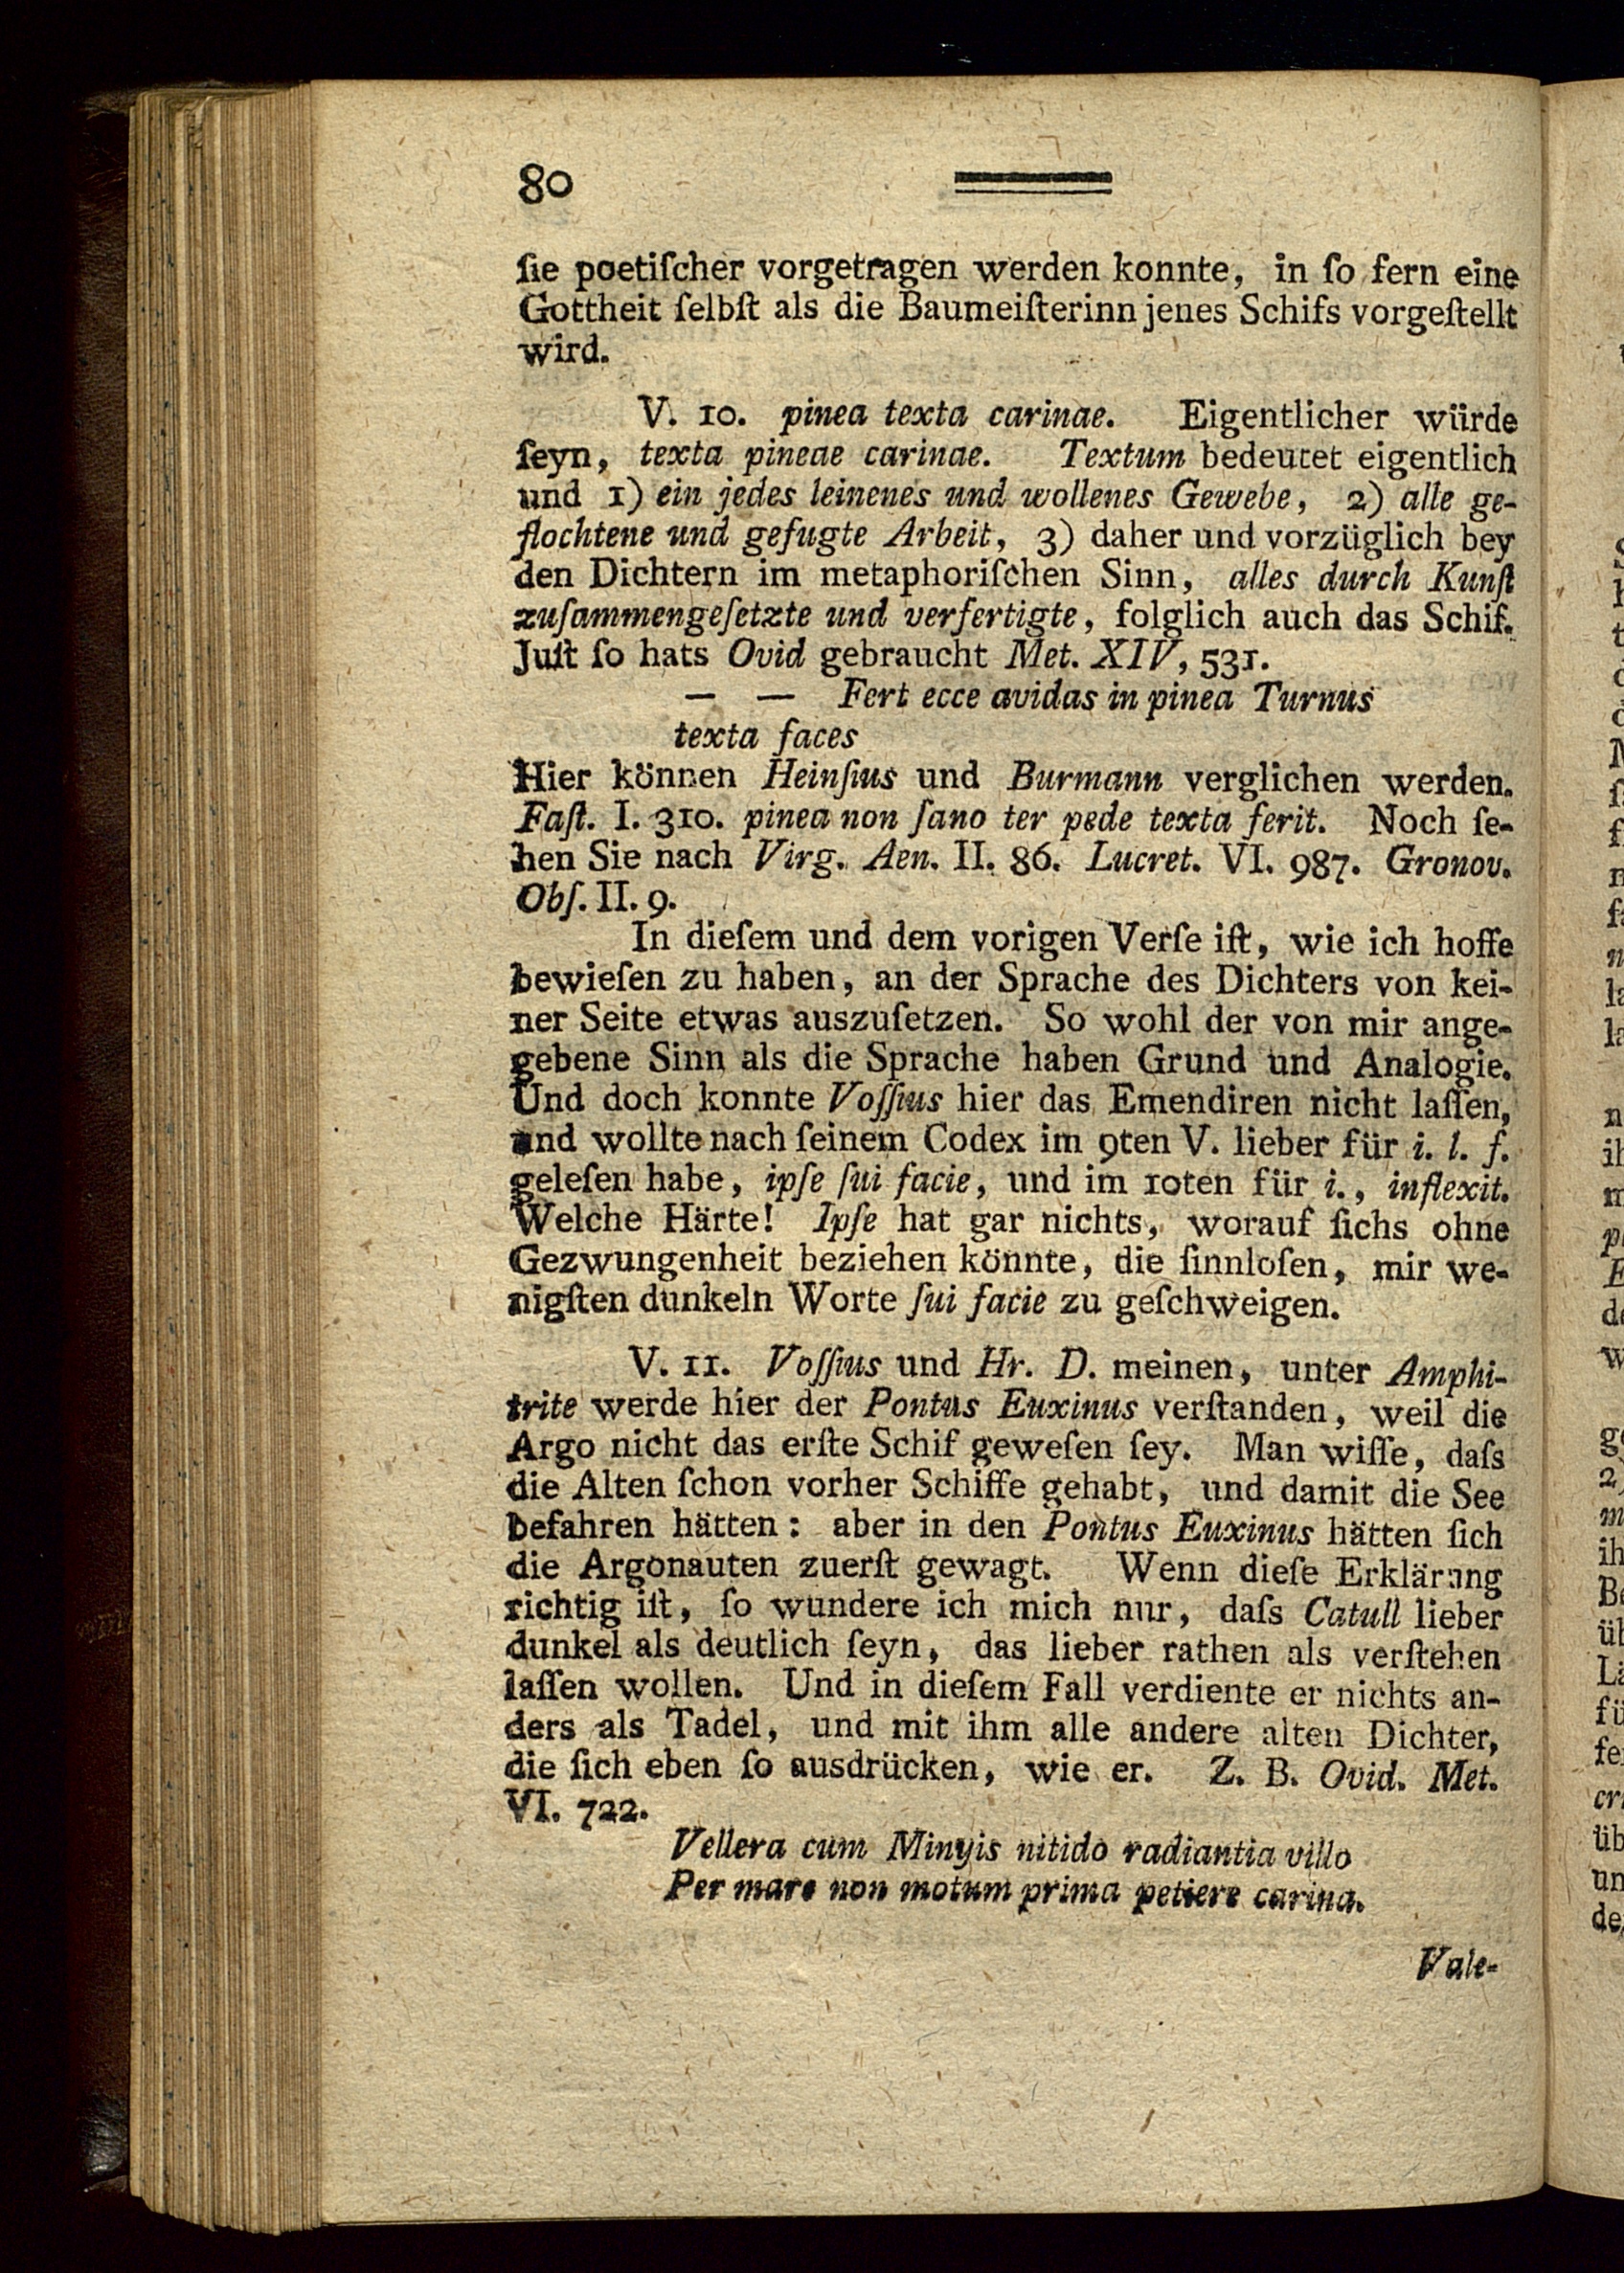 80
ſie poetiſcher vorgetragen werden konnte, in ſo fern eine
Gottheit ſelbſt als die Baumeiſterinn jenes Schifs vorgeſtellt
wird.
V. 10. pinea texta carinae. Eigentlicher würde
ſeyn, texta pineae carinae. Textum bedeutet eigentlich
und 1) ein jedes leinenes und wollenes Gewebe, 2) alle ge-
flochtene und gefugte Arbeit, 3) daher und vorzüglich bey
den Dichtern im metaphoriſchen Sinn, alles durch Kunſt
zuſammengeſetzte und verfertigte, folglich auch das Schif.
Juſt ſo hats Ovid gebraucht Met. XIV, 531.
— — Fert ecce avidas in pinea Turnus
texta faces
Hier können Heinſius und Burmann verglichen werden.
Faſt. I. 310. pinea non ſano ter pede texta ferit. Noch ſe-
hen Sie nach Virg. Aen. II. 86. Lucret. VI. 987. Gronov.
Obſ. II. 9.
In dieſem und dem vorigen Verſe iſt, wie ich hoffe
bewieſen zu haben, an der Sprache des Dichters von kei-
ner Seite etwas auszuſetzen. So wohl der von mir ange-
gebene Sinn als die Sprache haben Grund und Analogie.
Und doch konnte Voſſius hier das Emendiren nicht laſſen,
und wollte nach ſeinem Codex im 9ten V. lieber für i. l. f.
geleſen habe, ipſe ſui facie, und im 10ten für i., inflexit.
Welche Härte! Ipſe hat gar nichts, worauf ſichs ohne
Gezwungenheit beziehen könnte, die ſinnloſen, mir we-
nigſten dunkeln Worte ſui facie zu geſchweigen.
V. 11. Voſſius und Hr. D. meinen, unter Amphi-
trite werde hier der Pontus Euxinus verſtanden, weil die
Argo nicht das erſte Schif geweſen ſey. Man wiſſe, daſs
die Alten ſchon vorher Schiffe gehabt, und damit die See
befahren hätten: aber in den Pontus Euxinus hätten ſich
die Argonauten zuerſt gewagt. Wenn dieſe Erklärung
richtig iſt, ſo wundere ich mich nur, daſs Catull lieber
dunkel als deutlich ſeyn, das lieber rathen als verſtehen
laſſen wollen. Und in dieſem Fall verdiente er nichts an-
ders als Tadel, und mit ihm alle andere alten Dichter,
die ſich eben ſo ausdrücken, wie er. Z. B. Ovid. Met.
VI. 722.
Vellera cum Minyis nitido radiantia villo
Per mare non motum prima petiere carina.
Vale-